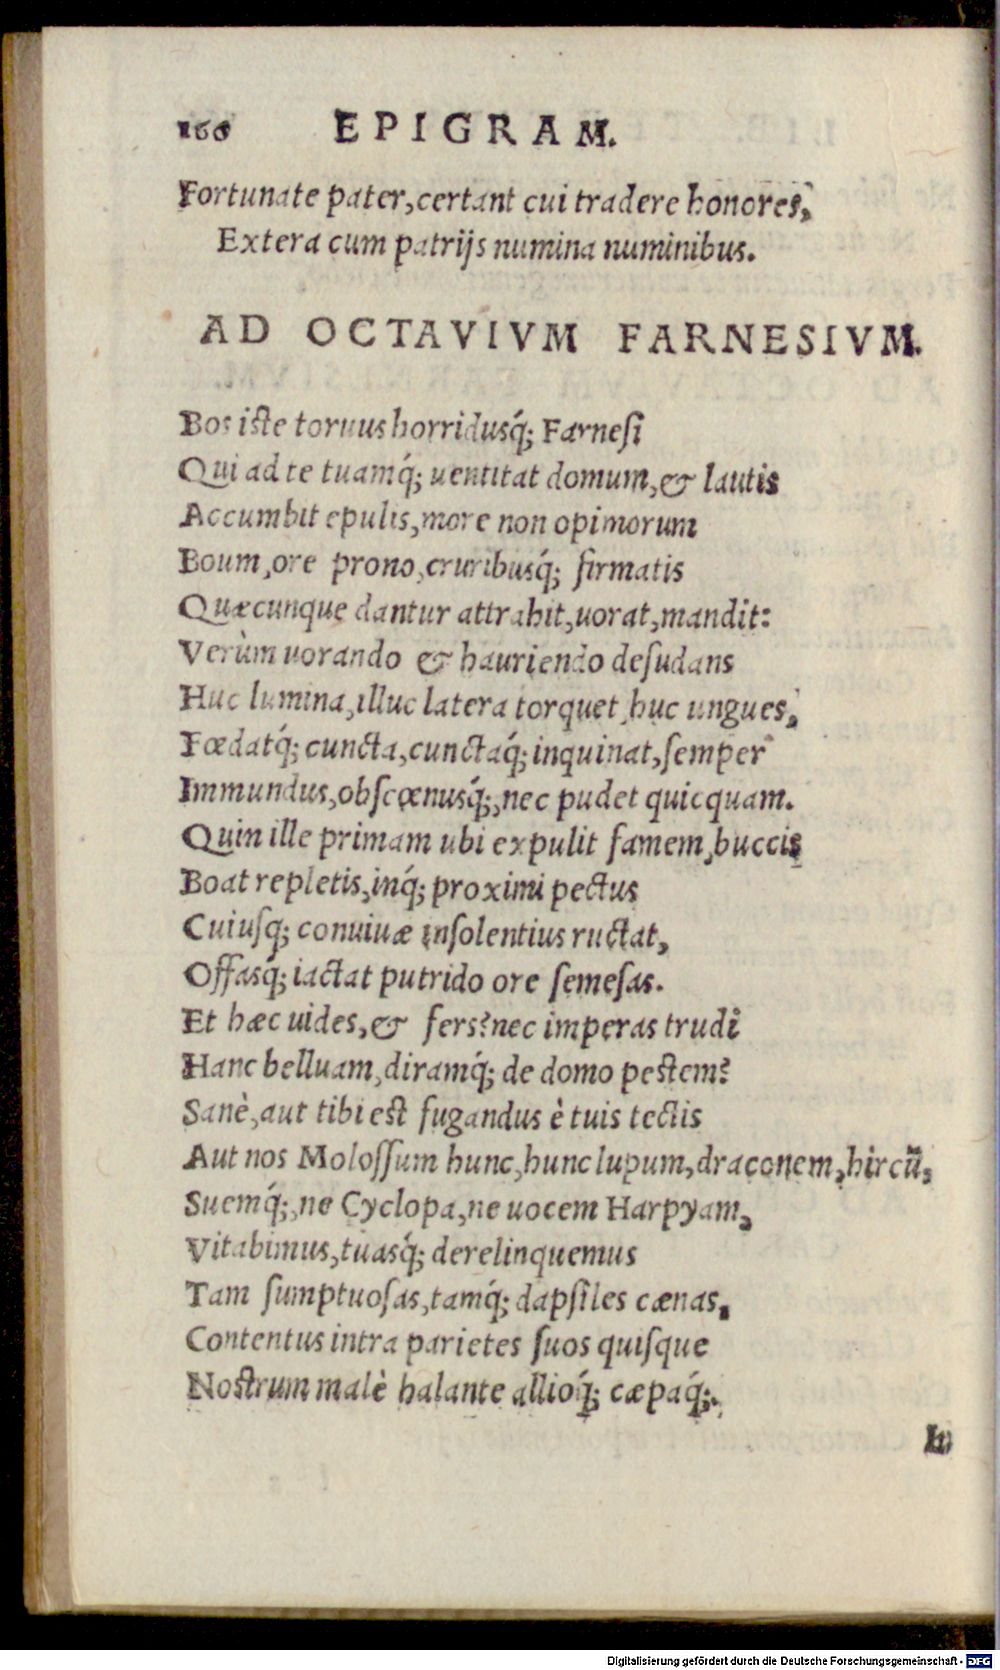 166 EPIGRAM.
Fortunate pater, certant cui tradere honores,
Extera cum patrijs numina numinibus.
AD OCTAVIVM FARNESIVM.
Bos iſte toruus horridusq́; Farneſi
Qui ad te tuamq́; uentitat domum, & lautis
Accumbit epulis, more non opimorum
Boum, ore prono, cruribusq́; firmatis
Quæcunque dantur attrahit, uorat, mandit:
Verùm uorando & hauriendo deſudans
Huc lumina, illuc latera torquet, huc ungues,
Fœdatq́; cuncta, cunctaq́; inquinat, ſemper
Immundus, obſcœnusq́;, nec pudet quicquam.
Quin ille primam ubi expulit famem, buccis
Boat repletis, inq́; proximi pectus
Cuiuſq; conuiuæ inſolentius ructat,
Offasq́; iactat putrido ore ſemeſas.
Et hæc uides, & fers? nec imperas trudi
Hanc belluam, diramq́; de domo peſtem?
Sanè, aut tibi eſt fugandus è tuis tectis
Aut nos Moloſſum hunc, hunc lupum, draconem, hircū,
Suemq́;, ne Cyclopa, ne uocem Harpyam,
Vitabimus, tuasq́; derelinquemus
Tam ſumptuoſas, tamq́; dapſiles cænas,
Contentus intra parietes ſuos quiſque
Noſtrum malè halante allioq́; cæpaq́;.
Digitalisierung gefördert durch die Deutsche Forschungsgemeinschaft - DFG